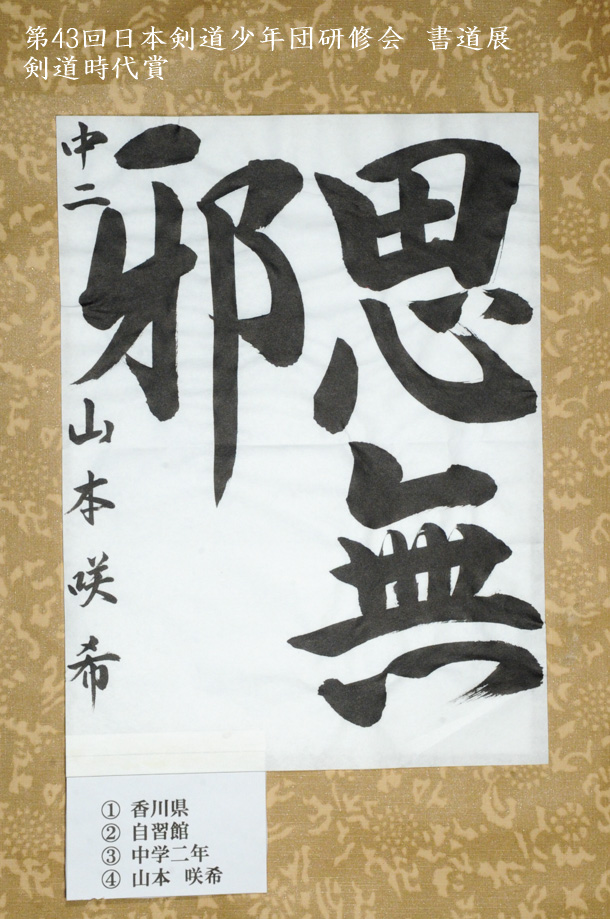 第43回日本剣道少年団研修会 書道展
剣道時代賞
思無
邪
中二 山本咲希
① 香川県
② 自習館
③ 中学二年
④ 山本 咲希